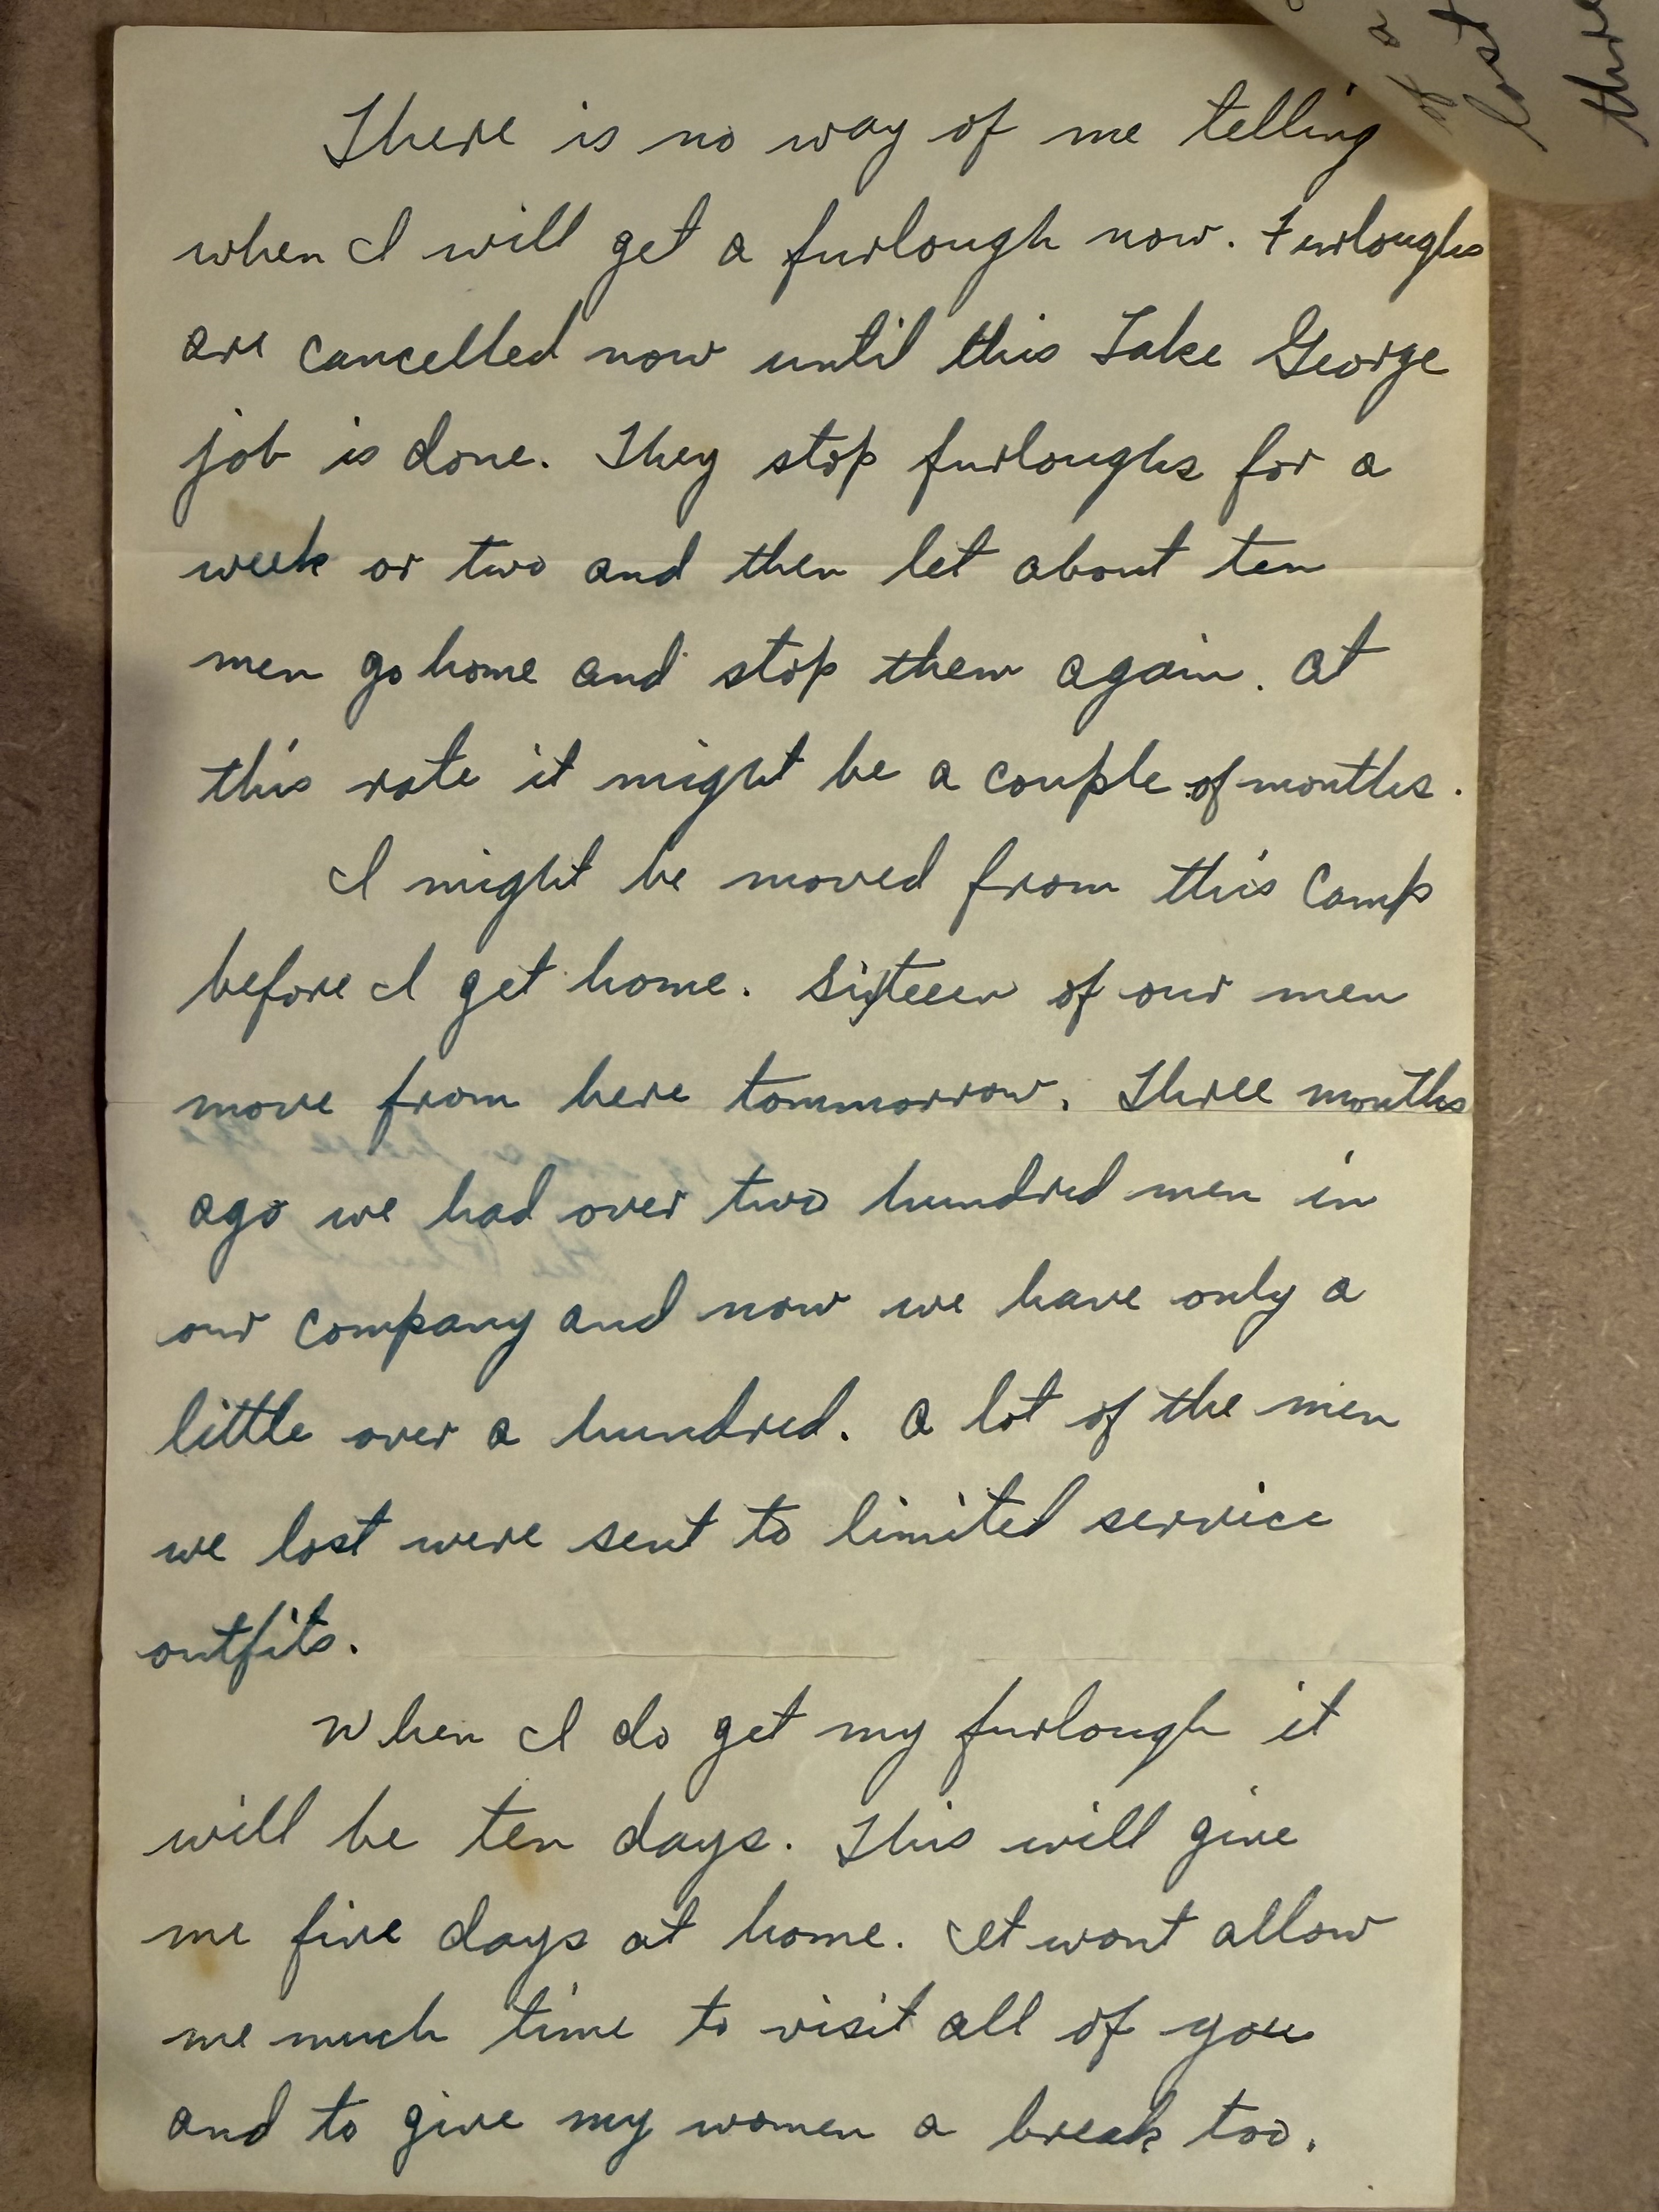 There is no way of me telling
when I will get a furlough now. Furloughs
are cancelled now until this Lake George
job is done. They stop furloughs for a
week or two and then let about ten
men go home and stop them again. At
this rate it might be a couple of months.
I might be moved from this camp
before I get home. Sixteen of our men
move from here tommorrow. Three months
ago we had over two hundred men in
our company and now we have only a
little over a hundred. A lot of the men
we lost were sent to limited service
outfits.
When I do get my furlough it
will be ten days. This will give
me five days at home. It wont allow
me much time to visit all of you
and to give my women a break too.
a
lost